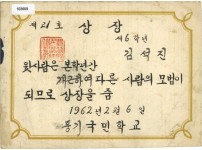 제21호 상장
제6학년
김석진
윗사람은 본학년간
개근하여 다른 사람의 모범이
되므로 상장을 줌
1962년 2월 6일
풍기국민학교